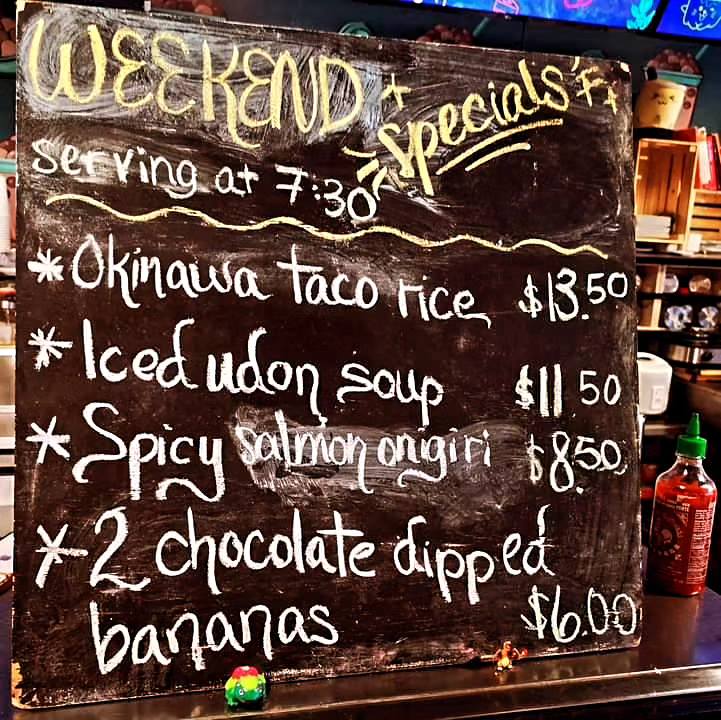 WEEKEND +
Specials
serving at 7:30
* Okinawa taco rice $13.50
* Iced udon soup $11.50
* Spicy salmon onigiri $8.50
* 2 chocolate dipped
bananas $6.00